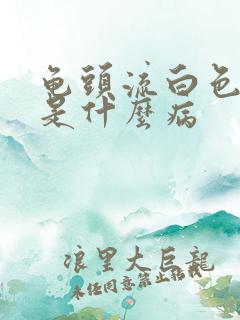 龟頭流白色
是什麽病
浪里大巨龍
未任同意禁止转载